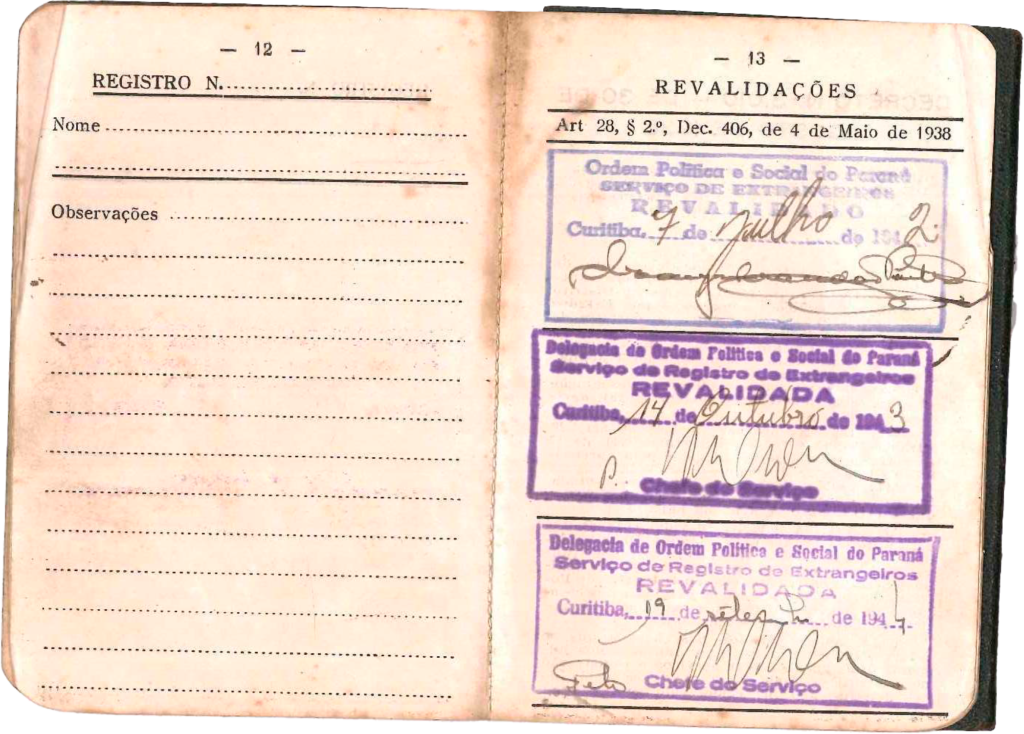 — 12 —
REGISTRO N.
Nome
Observações
— 13 —
REVALIDAÇÕES
Art 28, § 2.º, Dec. 406, de 4 de Maio de 1938
Ordem Política e Social do Paraná
SERVIÇO DE EXTRANGEIROS
REVALIDADO
Curitiba, 7 de julho de 1942
Delegacia de Ordem Política e Social do Paraná
Serviço de Registro de Extrangeiros
REVALIDADA
Curitiba, 14 de Outubro de 1943
p.
Chefe do Serviço
Delegacia de Ordem Política e Social do Paraná
Serviço de Registro de Extrangeiros
REVALIDADA
Curitiba, 19 de de 194
Pelo Chefe do Serviço